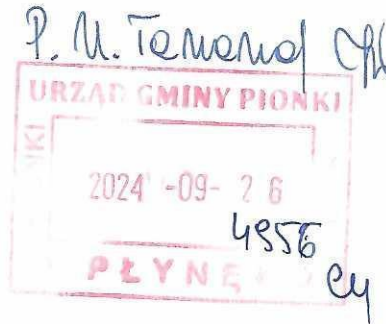 P. M. Tamana
URZĄD GMINY PIONKI
2024 -09- 26
4956
PŁYNĘ